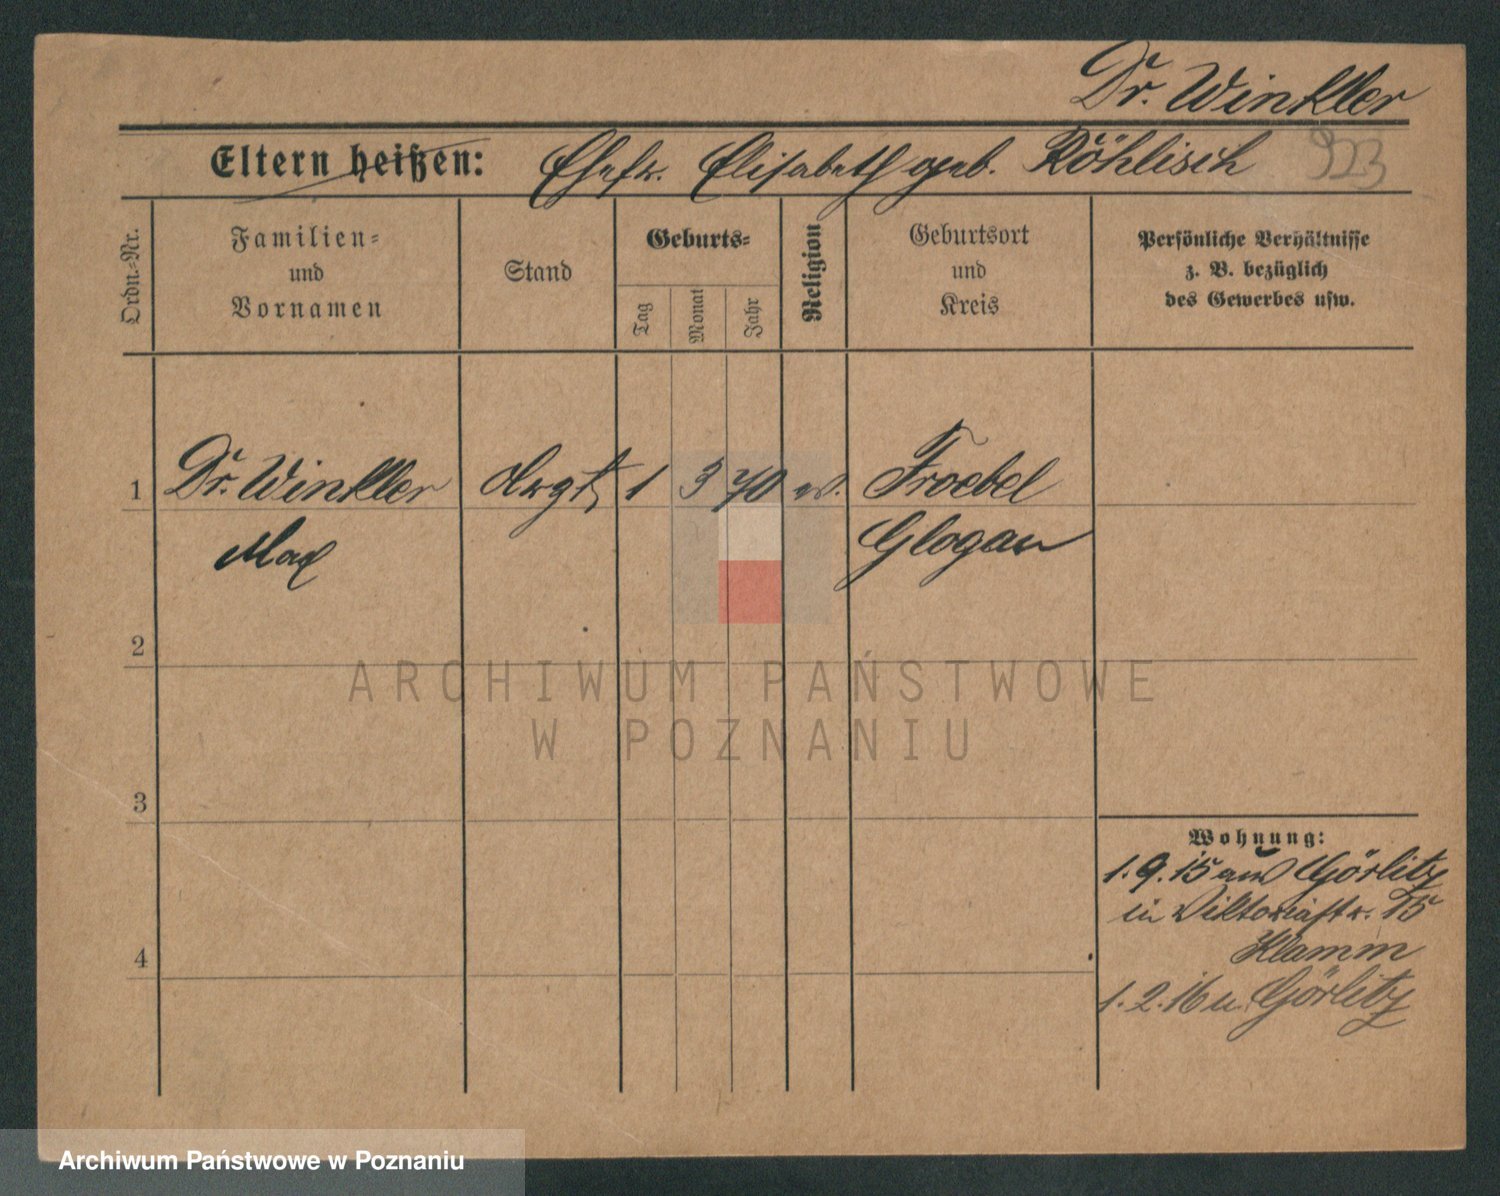 Dr. Winkler
Eltern heißen: Ehefr. Elisabeth geb. Röhlisch 923
Ordn.-Nr.
Familien-
und
Vornamen
Stand
Geburts-
Tag
Monat
Jahr
Religion
Geburtsort
und
Kreis
Persönliche Verhältnisse
z. B. bezüglich
des Gewerbes usw.
1 Dr. Winkler Arzt 1 3 70 ev. Froebel
Max Glogau
2
ARCHIWUM PAŃSTWOWE
W POZNANIU
3
Wohnung:
1.9.15 aus Görlitz
in Viktoriastr. 15
Klamm
1.2.16 n. Görlitz
4
Archiwum Państwowe w Poznaniu